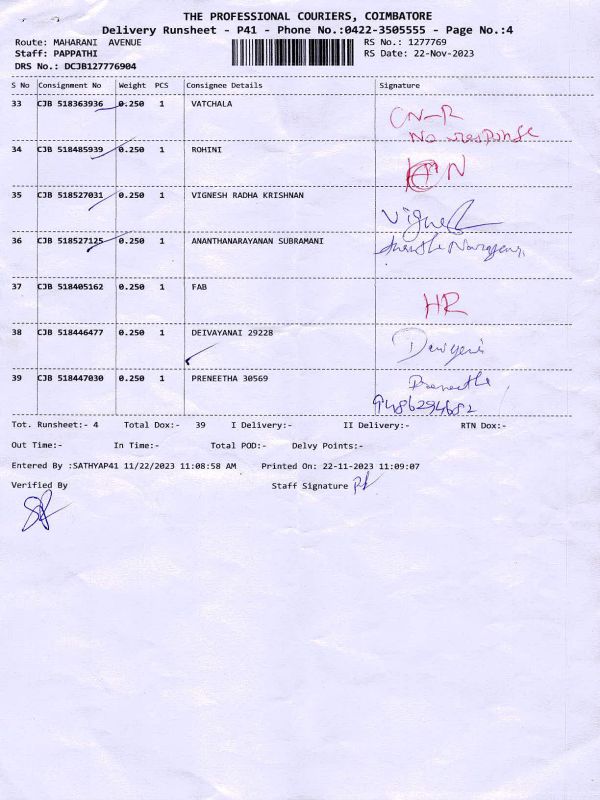 THE PROFESSIONAL COURIERS, COIMBATORE
Delivery Runsheet - P41 - Phone No.:0422-3505555 - Page No.:4
Route: MAHARANI AVENUE RS No.: 1277769
Staff: PAPPATHI RS Date: 22-Nov-2023
DRS No.: DCJB127776904
S No Consignment No Weight PCS Consignee Details Signature
33 CJB 518363936 0.250 1 VATCHALA CN-R
No response
34 CJB 518485939 0.250 1 ROHINI
35 CJB 518527031 0.250 1 VIGNESH RADHA KRISHNAN
36 CJB 518527125 0.250 1 ANANTHANARAYANAN SUBRAMANI
37 CJB 518405162 0.250 1 FAB HR
38 CJB 518446477 0.250 1 DEIVAYANAI 29228
39 CJB 518447030 0.250 1 PRENEETHA 30569 Preneetha
9486294682
Tot. Runsheet:- 4 Total Dox:- 39 I Delivery:- II Delivery:- RTN Dox:-
Out Time:- In Time:- Total POD:- Delvy Points:-
Entered By :SATHYAP41 11/22/2023 11:08:58 AM Printed On: 22-11-2023 11:09:07
Verified By Staff Signature